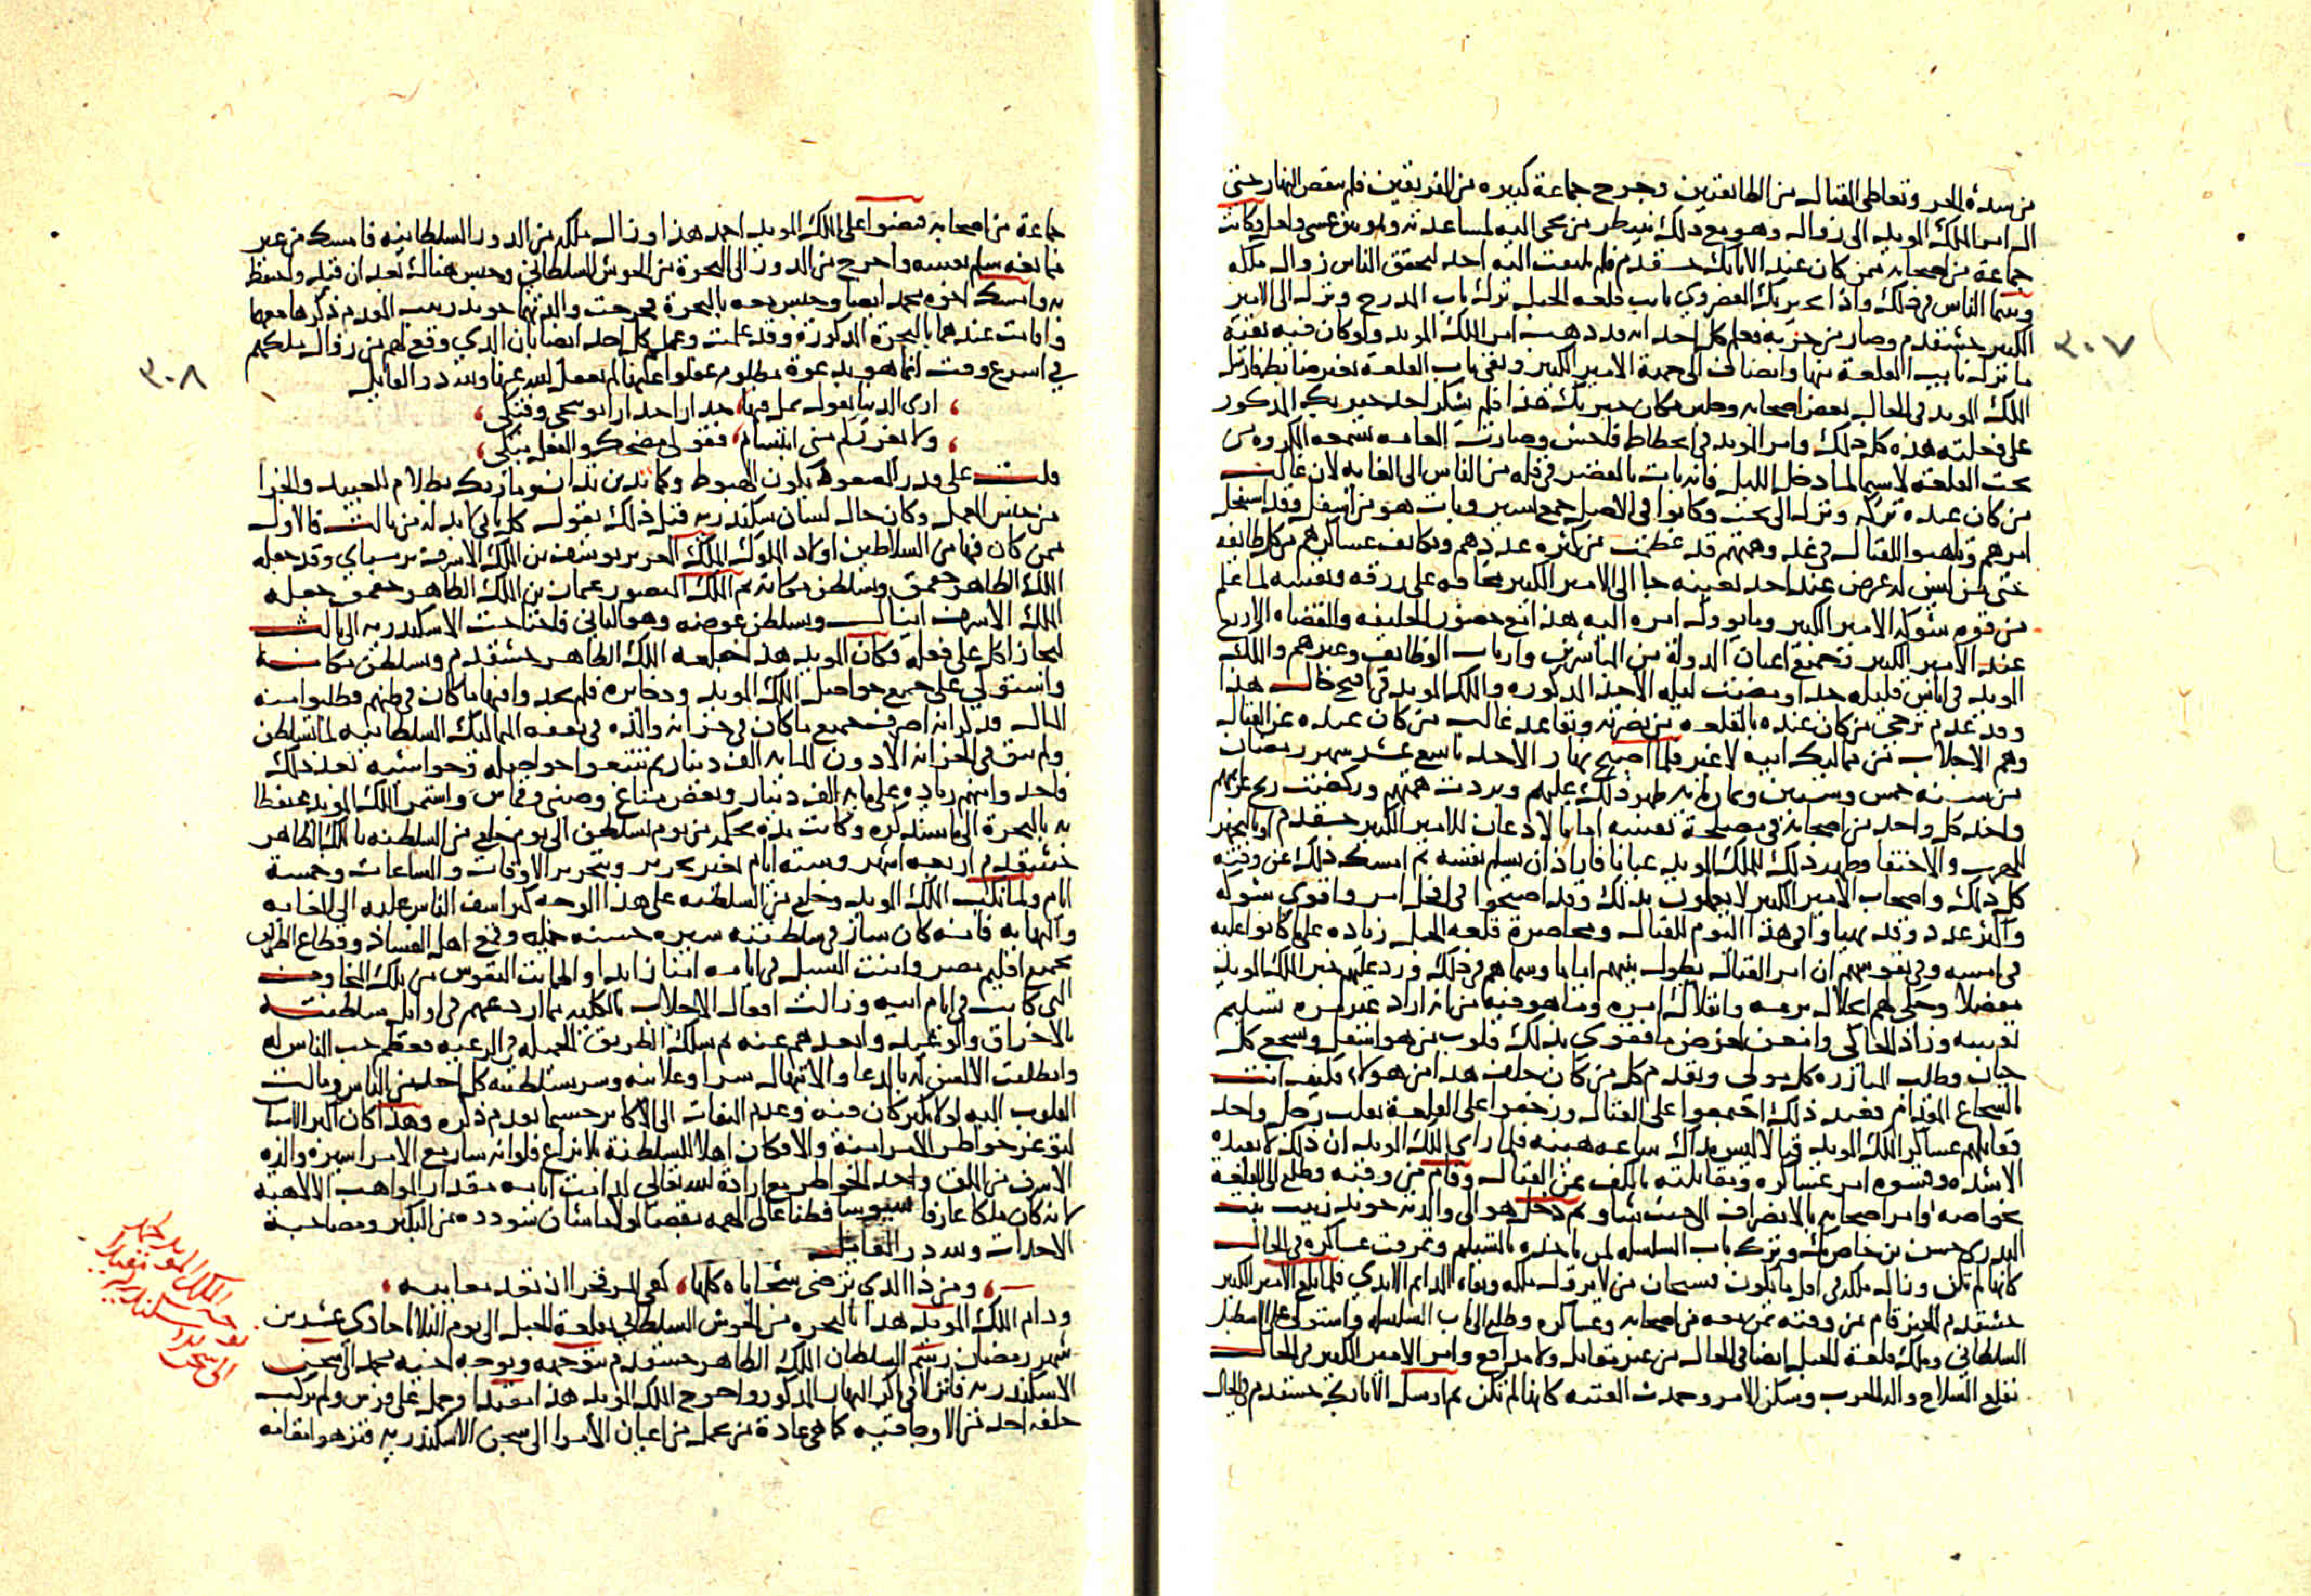 من شدة الحر وتعاطى القتال من الطائفتين وجرح جماعة كبيره من الفريقين فلم ينقص النهار حتى
ال امر الملك المويد الى زوال وهو مع ذلك ينتظر من يجى اليه لمساعدته ولو من عسى ولعل وكانت
جماعة من اصحابه ممن كان عند الاتابك خشقدم فلم يلتفت اليه احد لتحقق الناس زوال ملكه
وبينما الناس في ذلك واذا بخيربك القصروي نايب قلعه الجبل ترك باب المدرج ونزل الى الامير
الكبير خشقدم وصار من حزبه فعلم كل احد انه قد ذهب امر الملك المويد ولو كان فيه بقيه
ما نزل نايب القلعة منها وانضاف الى جهة الامير الكبير وبقى باب القلعة بغير ضابط فارسل
الملك المويد في الحال بعض اصحابه وجلس مكان خير بك هذا فلم يشكر احد خير بك المذكور
على فعلته هذه كل ذلك وامر المويد في انحطاط فاحش وصارت العامه تسمعه المكروه من
تحت القلعة لاسيما لما دخل الليل فانه بات بالقصر في قله من الناس الى الغايه لان غالب
من كان عنده تركه ونزل الى تحت وكانوا في الاصل جمع يسير وبات هو من اسفل وقد استفحل
امرهم وتاهبوا للقتال في غد وهمتهم قد عظمت من كثره عددهم وتكاثف عساكرهم من كل طايفه
حتى من ليس له غرض عند احد بعينه جا الى الامير الكبير مخافه على رزقه ونفسه لما علم
من قوه شوكه الامير الكبير وما يوول امره اليه هذا مع حضور الخليفه والقضاه الاربع
عند الامير الكبير وجميع اعيان الدولة من المباشرين وارباب الوظايف وغيرهم والملك
المويد في اناس قليله جدا ومضت ليله الاحد المذكوره والملك المويد في اقبح حال هذا
وقد عدم ترجى من كان عنده بالقلعه من نصرته وتقاعد غالب من كان عنده عن القتال
وهم الاجلاب من مماليك ابيه لا غير فلما اصبح نهار الاحد تاسع عشر شهر رمضان
من سنه خمس وستين وثمان مايه ظهر ذلك عليهم وبردت همتهم وركضت ريح عزمهم
واخذ كل واحد من اصحابه في مصلحة نفسه اما بالاذعان للامير الكبير خشقدم او بالتجهز
للهرب والاختفا وظهر ذلك للملك المويد عيانا فاراد ان يسلم نفسه ثم امسك ذلك عن وقته
كل ذلك واصحاب الامير الكبير لا يعلمون بذلك وقد اصبحوا في افحل امر واقوى شوكه
واكثر عدد وقد تهياوا في هذا اليوم للقتال ومحاصرة قلعه الجبل زياده على ما كانوا عليه
في امسه وفي نفوسهم ان امر القتال يطول بينهم اياما وبينما هم في ذلك ورد عليهم خبر الملك المويد
مفصلا وحكى لهم انحلال برمه واقلال امره وما هو فيه من انه اراد غير مره تسليم
نفسه وزاد الحاكى وامعن لغرض ما فقوى بذلك قلوب من هو اسفل وتشجع كل
جبان وطلب المبارزه كل مولى وتقدم كل من كان خلف هذا من هولاء فكيف انت
بالشجاع المقدام فعند ذلك اجتمعوا على القتال وزحفوا على القلعة بقلب رجل واحد
فقاتلهم عساكر الملك المويد قتالا ليس بذاك ساعه هينه فلما راى الملك المويد ان ذلك لا يفيده
الا شده وقسوه امر عساكره ومقاتلته بالكف عن القتال وقام من وقته وطلع الى القلعة
بخواصه وامر اصحابه بالانصراف الى حيث شاو ثم دخل هو الى والدته خوند زينب بنت
البدرى حسن بن خاص بك وترك باب السلسله لمن ياخذه بالتسليم وتمزقت عساكره في الحال
كانها لم تكن وزال ملكه في اول ما يكون فسبحان من لا يزول ملكه وبقاه الدايم الابدي فلما بلغ الامير الكبير
خشقدم الخبر قام من وقته بمن معه من اصحابه وعساكره وطلع الى باب السلسله واستولى على الاسطبل
السلطاني وملك قلعة الجبل ايضا في الحال من غير مقاتل ولا مدافع وامر الامير الكبير في الحال
بقلع السلاح والة الحرب وسكن الامر وخمدت الفتنه كانها لم تكن ثم ارسل الاتابك خشقدم في الحال
٣٠٧
جماعة من اصحابه قبضوا على الملك المويد احمد هذا وزال ملكه من الدور السلطانيه فامسك من غير
ممانعه سلم نفسه واخرج من الدور الى البحرة من الحوش السلطاني وحبس هناك بعد ان قيد واحتفظ
به وامسك اخوه محمد ايضا وحبس معه بالبحرة ثم خرجت والدتهما خوند زينب المقدم ذكرها معهما
واقامت عندهما بالبحرة المذكورة وقد علمت وعلم كل احد ايضا بان الذي وقع لهم من زوال ملكهم
في اسرع وقت انما هو بدعوة مظلوم غفلوا عليها لم يغفل الله عنها ولله در القايل
ارى الدنيا تقول بمل فيها، حذار حذار من بطشي وفتكي،
ولا يغرركم مني ابتسام، فقولى مضحك والفعل مبكي،
قلت على قدر الصعود يكون الهبوط وكما تدين تدان وما ربك بظلام للعبيد والجزا
من جنس العمل وكان حال لسان سكندريه قبل ذلك يقول كل ثاني لا بد له من ثالث فالاول
ممن كان فيها من السلاطين اولاد الملوك الملك العزيز يوسف بن الملك الاشرف برسباي وقد جعله
الملك الظاهر جقمق وتسلطن مكانه ثم الملك المنصور عثمان بن الملك الظاهر جقمق جعله
الملك الاشرف اينال وتسلطن عوضه وهو الثاني فاحتاجت الاسكندريه الى ثالث
ليجازا كل على فعله فكان المويد هذا خلعه الملك الظاهر خشقدم وتسلطن مكانه
واستولى على جميع حواصل الملك المويد وذخايره فلم يجد وافيها ما كان في ظنهم فطلبوا منه
المال فذكر انه اصرف جميع ما كان في خزانة والده في نفقه المماليك السلطانيه لما تسلطن
ولم يبق في الخزانه الا دون المايه الف دينار ثم تتبعوا حواصله وحواشيه بعد ذلك
فاخذوا منهم زياده على مايه الف دينار وبعض متاع وصيني وقماش واستمر الملك المويد محتفظا
به بالبحرة الى ما سنذكره وكانت مدة تحكمه من يوم تسلطن الى يوم خلع من السلطنه بالملك الظاهر
خشقدم اربعه اشهر وسته ايام بغير تحرير وبتحرير الاوقات والساعات وخمسة
ايام ولما نكب الملك المويد وخلع من السلطنه على هذا الوجه كثر اسف الناس عليه الى الغايه
والنهايه فانه كان سار في سلطنته سيره حسنه جميله وقمع اهل الفساد وقطاع الطريق
بجميع اقليم مصر وامنت السبل في ايامه امنا زايدا واطمانت النفوس من تلك المخاوف
التى كانت في ايام ابيه وزالت افعال الاجلاب بالكليه مما اردعهم في اوايل سلطنته
بالاخراق والوعيد وابعدهم عنه ثم سلك الطريق الجميله في الرعيه فعظم حب الناس له
وانطلقت الالسن له بالدعا والابتهال سرا وعلانيه وسر بسلطنته كل احد من الناس ومالت
القلوب اليه لولا تكبر كان فيه وعدم التفات الى الاكابر حسبما تقدم ذكره وهذا كان اكبر الاسباب
لتوغر خواطر الامرا منه والا فكان اهلا للسلطنة بلا نزاع فلو انه سار مع الامرا سيره والده
الاشرف من الملق واخذ الخواطر مع ارادة الله تعالى لدامت ايامه مقدار المواهب الالاهيه
لانه كان ملكا عارفا سيوسا فطنا عالى الهمه يقضا لولا ما شان سودده من التكبر ومصاحبة
الاحداث ولله در القايل
ومن ذا الذي ترضى سجاياه كلها، كفى المر فخرا ان تعد معايبه،
ودام الملك المويد هذا بالبحره من الحوش السلطاني بقلعة الجبل الى يوم الثلاثا حادى عشرين
شهر رمضان رسم السلطان الملك الظاهر خشقدم بتوجهه وتوجه اخيه محمد الى سجن
الاسكندريه فانزلا في اخر النهار المذكور واخرج الملك المويد هذا مقيدا وحمل على فرس ولم يركب
خلفه احد من الاوجاقيه كما هي عادة من يحمل من اعيان الامرا الى سجن الاسكندريه فتنزهوا مقامه
٣٠٨
الملك المويد احمد
الى سجن سكندريه